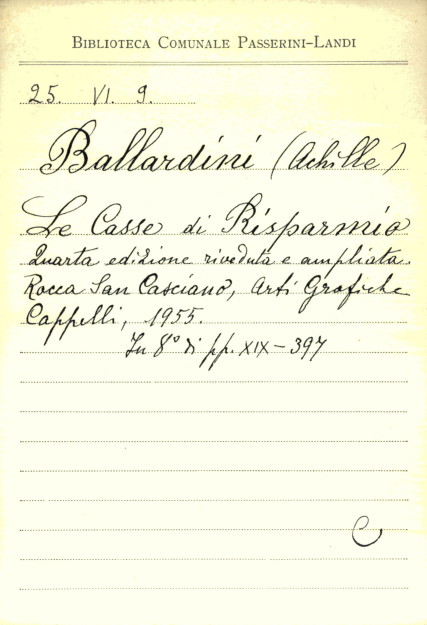 BIBLIOTECA COMUNALE PASSERINI-LANDI
25. VI. 9.
Ballardini (Achille)
Le Casse di Risparmio
Quarta edizione riveduta e ampliata.
Rocca San Casciano, Arti Grafiche
Cappelli, 1955.
In 8° di pp. XIX-397
C